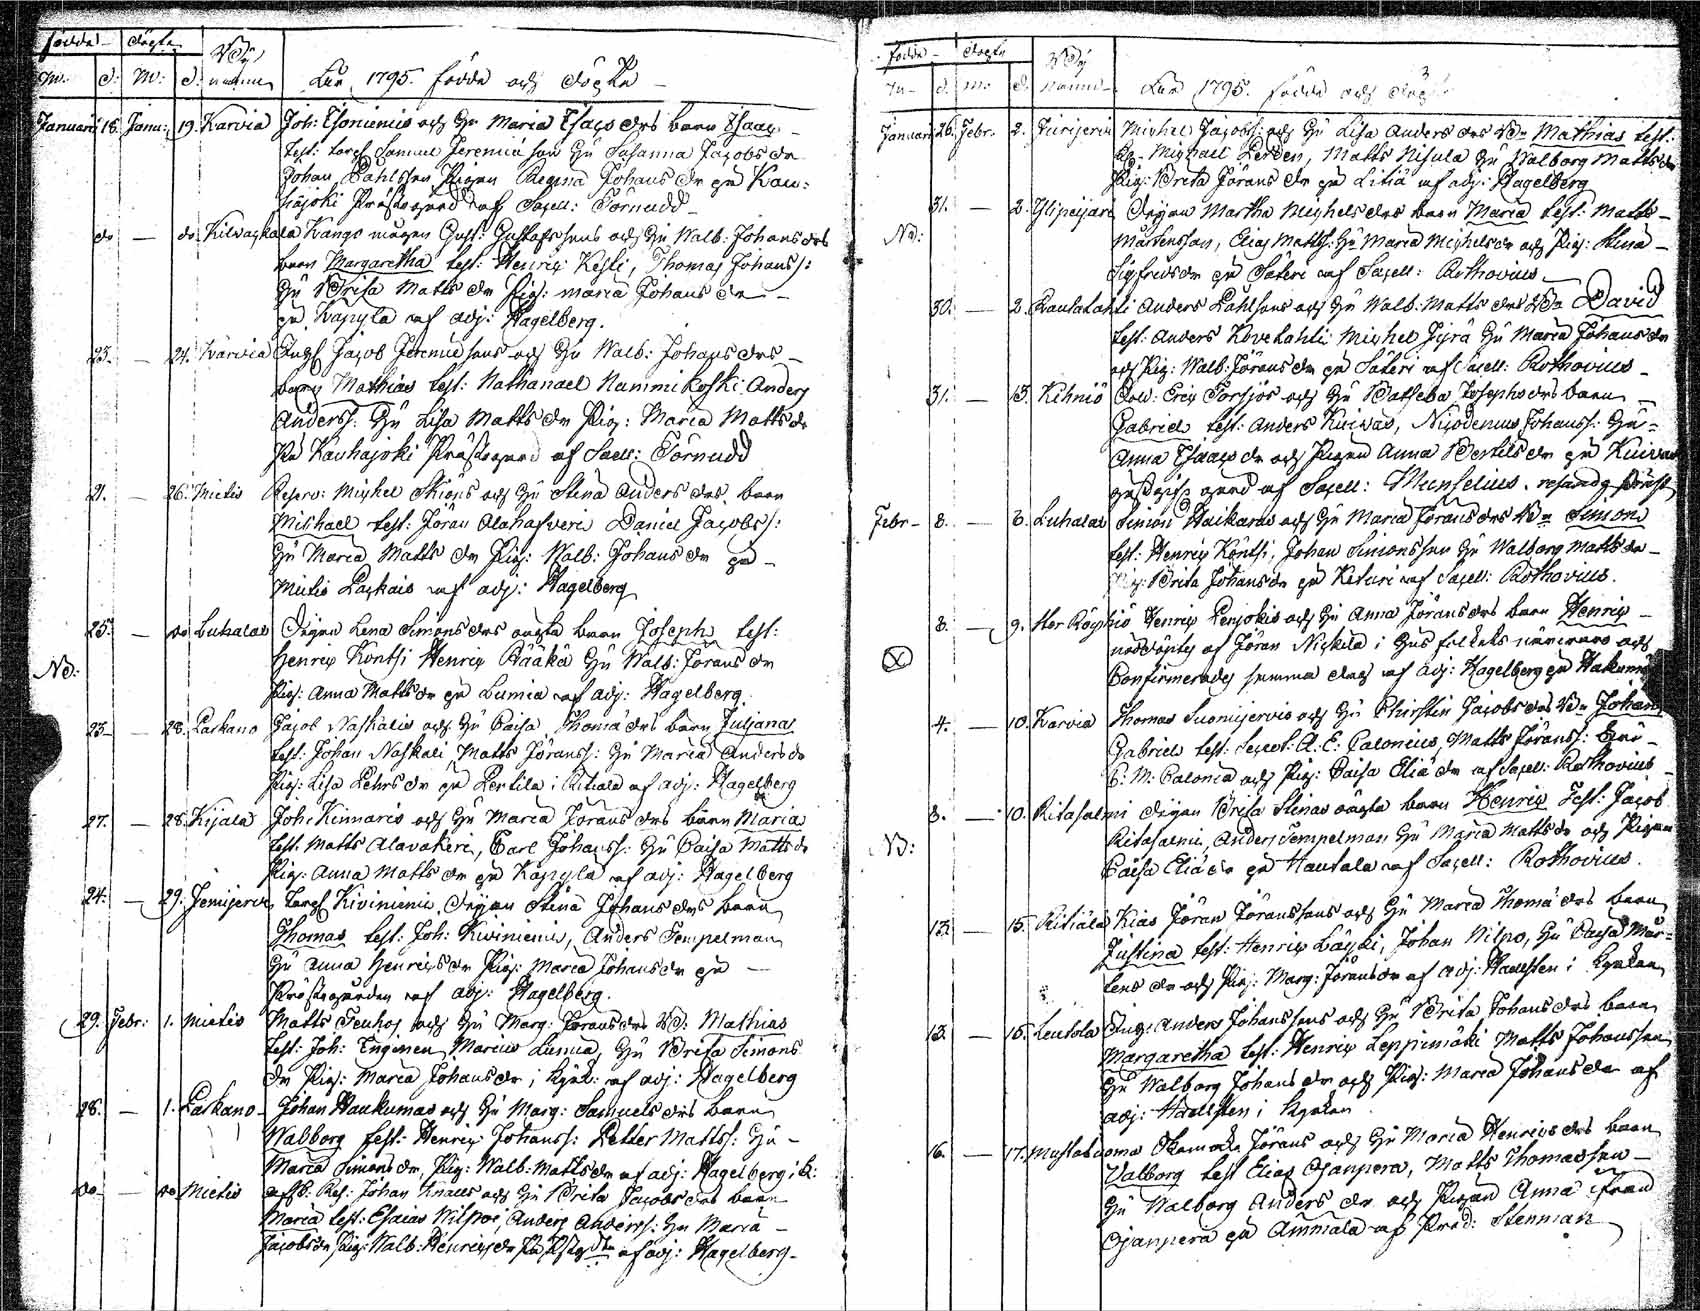 födde döpte Byj
M. d: M: d: namn Åhr 1795. födde och döpte
Januarii 18. Janu: 19. Karvia Joh: Isoniemis och Hu Maria Isacs drs barn Isaac
test: torp: Samuel Jeremiæ son Hu Susanna Jacobs dr
Johan Påhlsson Pigan Regina Johans dr på Kau:
hajoki Prästegård af Sacell: Törnudd
do — do Kilvaykala Kangs mågen Gust: Gustafssons och Hu Walb: Johans drs
barn Margaretha test: Henric Kesti, Thomas Johanss:
Hu Brita Matts dr Pig: Maria Johans dr
på Käpylä af adj: Hagelberg.
23. — 24. Karvia Jacob Jeremiæ sons och Hu Walb: Johans drs
barn Mathias test: Nathanael Nummikoski Anders
Anderss: Hu Lisa Matts dr Pig: Maria Matts dr
På Kauhajoki Prästegård af Sacell: Törnudd
21. — 26. Mietis Reserv: Michel och Hu Stina Anders drs barn
Michael test: Jöran Alahafveri Daniel Jacobss:
Hu Maria Matts dr Pig: Walb: Johans dr på
Mietis Parkais af adj: Hagelberg
25. — do Luhalas Pigan Lena Simons drs oägta barn Joseph test:
Henric Kontsi Henric Rääkä Hu Walb: Jörans dr
Nd:
Pig: Anna Matts dr på Lumia af adj: Hagelberg.
23. — 28. Parkano Jacob Naskalis och Hu Caisa Thomæ drs barn Juliana
test: Johan Naskali, Matts Jöranss: Hu Maria Anders dr
Pig: Lisa Pehrs dr på Pertila i Ritiala af adj: Hagelberg
27. — 28. Kijala Joh: Kinnaris och Hu Maria Jörans drs barn Maria
test: Matts Alavakeri, Carl Johanss: Hu Caisa Matts dr
Pig: Anna Matts dr på Käpylä af adj: Hagelberg
24. — 29. Jemijervi torp: Kiviniemis, Pigan Stina Johans drs barn
Thomas test: Joh: Kiviniemi, Anders Tempelman
Hu Anna Henrics dr Pig: Maria Johans dr på
Prästegården af adj: Hagelberg.
29. Febr: 1. Mietis Matts och Hu Marg: Jörans drs Bn Mathias
test: Joh: Inginen Marcus Lumia, Hu Brita Simons
dr Pig: Maria Johans dr i kyrk: af adj: Hagelberg
28. — 1. Parkano Johan Haukumas och Hu Marg: Samuels drs barn
Walborg test: Henric Johanss: Petter Mattss: Hu
Maria Simons dr, Pig: Walb: Matts dr af adj: Hagelberg i k:
do — do Mietis Johan Knaus och Hu Brita Jacobs drs barn
Maria test: Esaias Nilpoi, Anders Anderss: Hu Maria
Jacobs dr Pig: Walb: Henrics dr af adj: Hagelberg
födde döpte Byj
M. d. M. d. namn Åhr 1795. födde och döpte
Januari 26. Febr. 2. Michel Jacobs: och Hu Lisa Anders drs Bn Mathias test:
Michael Lerden, Matts Nisula Hu Walborg Matts dr
Pig: Brita Jörans dr på Litiä af adj: Hagelberg
31. — 2. Ylipeijari Pigan Martha Michels drs barn Maria test: Matts
Nd: Mårtensson, Elias Mattss: Hu Maria Michels dr och Pig: Stina
Sigfreds dr på Säteri af Sacell: Rothovius
30. — 2. Rautalahti Anders Påhlsons och Hu Walb: Matts drs Bn David
test: Anders Kovelahti Michel Hu Maria Johans dr
och Pig: Walb: Jörans dr på Säteri af Sacell: Rothovius
31. — 3. Kihniö Sold: Eric Torsjös och Hu Bathseba Josephs drs barn
Gabriel test: Anders Kuivas, Nicodemus Johanss: Hu
Anna Isacs dr och Pigan Anna Bertils dr på Kuivas
gård af Sacell: Munselius.
Febr 8. — 8. Luhalas Simon Haikaras och Hu Maria Jörans drs Bn Simon
test: Henric Köntsi, Johan Simonsson Hu Walborg Matts dr
Pig: Brita Johans dr på Keturi af Sacell: Rothovius.
8. — 9. Henric Penjokis och Hu Anna Jörans drs barn Henric
nöddöpt af Jöran Niskila i Gus folkets närvaro och
Confirmerades samma dag af adj: Hagelberg på
4. — 10. Karvia Thomas Suomijervis och Hu Christin Jacobs drs Bn Johan
Gabriel test: A: E: Calonius, Matts Jöranss:
C: M: Calonia och Pig: Caisa Eliæ dr af Sacell: Rothovius
3. — 10. Ritasalmi Pigan Brita Stinas oägta barn Henric Test: Jacob
Nd: Ritasalmi, Anders Tempelman Hu Maria Matts dr och Pigan
Caisa Eliæ dr på Hautala af Sacell: Rothovius.
13. — 15. Ritiala Kias Jöran Jöranssons och Hu Maria Thomæ drs barn
Justina test: Henric Johan Nilpo, Hu Caisa Mår-
tens dr och Pig: Marg: Jörans dr af adj: Hallsten i kyrkan
13. — 15. Leutola Anders Johanssons och Hu Brita Johans drs barn
Margaretha test: Henric Leppimäki Matts Johansson
Hu Walborg Johans dr och Pig: Maria Johans dr af
adj: Hallsten i kyrkan
16. — 17. Mustatuoma Jörans och Hu Maria Henrics drs barn
Valborg test Elias Ojanpera, Matts Thomasson
Hu Walborg Anders dr och Pigan Anna ifrån
Ojanpera på Ammala af Pred: Stenman